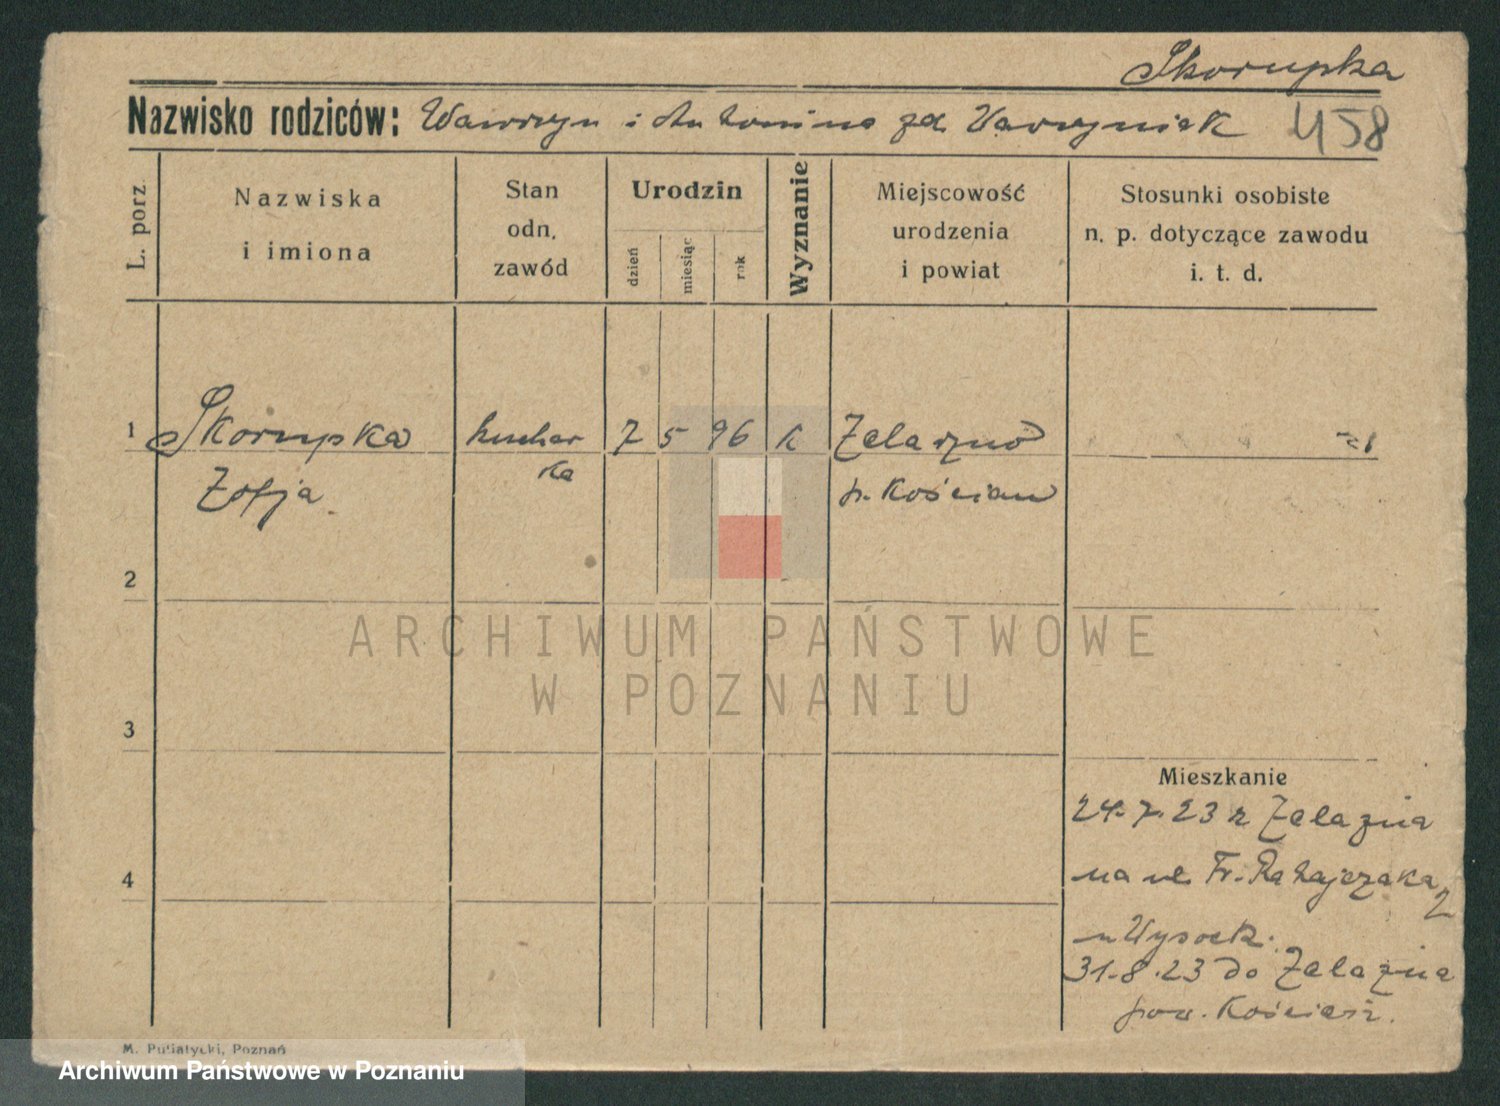 Skorupka
Nazwisko rodziców: Wawrzyn i Antonina zd Wawrzyniak 458
L. porz.
Nazwiska
i imiona
Stan
odn.
zawód
Urodzin
dzień
miesiąc
rok
Wyznanie
Miejscowość
urodzenia
i powiat
Stosunki osobiste
n. p. dotyczące zawodu
i. t. d.
1 Skorupka kuchar 7 5 96 k Żelazno
Zofja ka p. Kościan
2
3
4
Mieszkanie
24.7.23 z Żelazna
na ul. Fr. Ratajczaka
2
u Wysock.
31.8.23 do Żelazna
pow. Kościan.
M. Pusiatycki, Poznań
ARCHIWUM PAŃSTWOWE
W POZNANIU
Archiwum Państwowe w Poznaniu